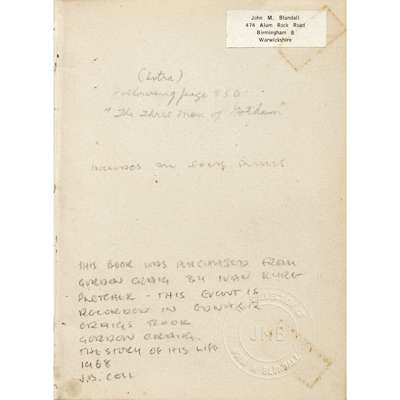 John M. Blundall
474 Alum Rock Road
Birmingham 8
Warwickshire
(Extra)
Following page 350:
"The Three Men of Gotham"
on every
THIS BOOK WAS PURCHASED FROM
GORDON CRAIG BY IVAN KURT
- THIS EVENT IS
RECORDED IN EDWARD
CRAIGS BOOK
GORDON CRAIG.
THE STORY OF HIS LIFE
1968
J.B. COLL
JMB